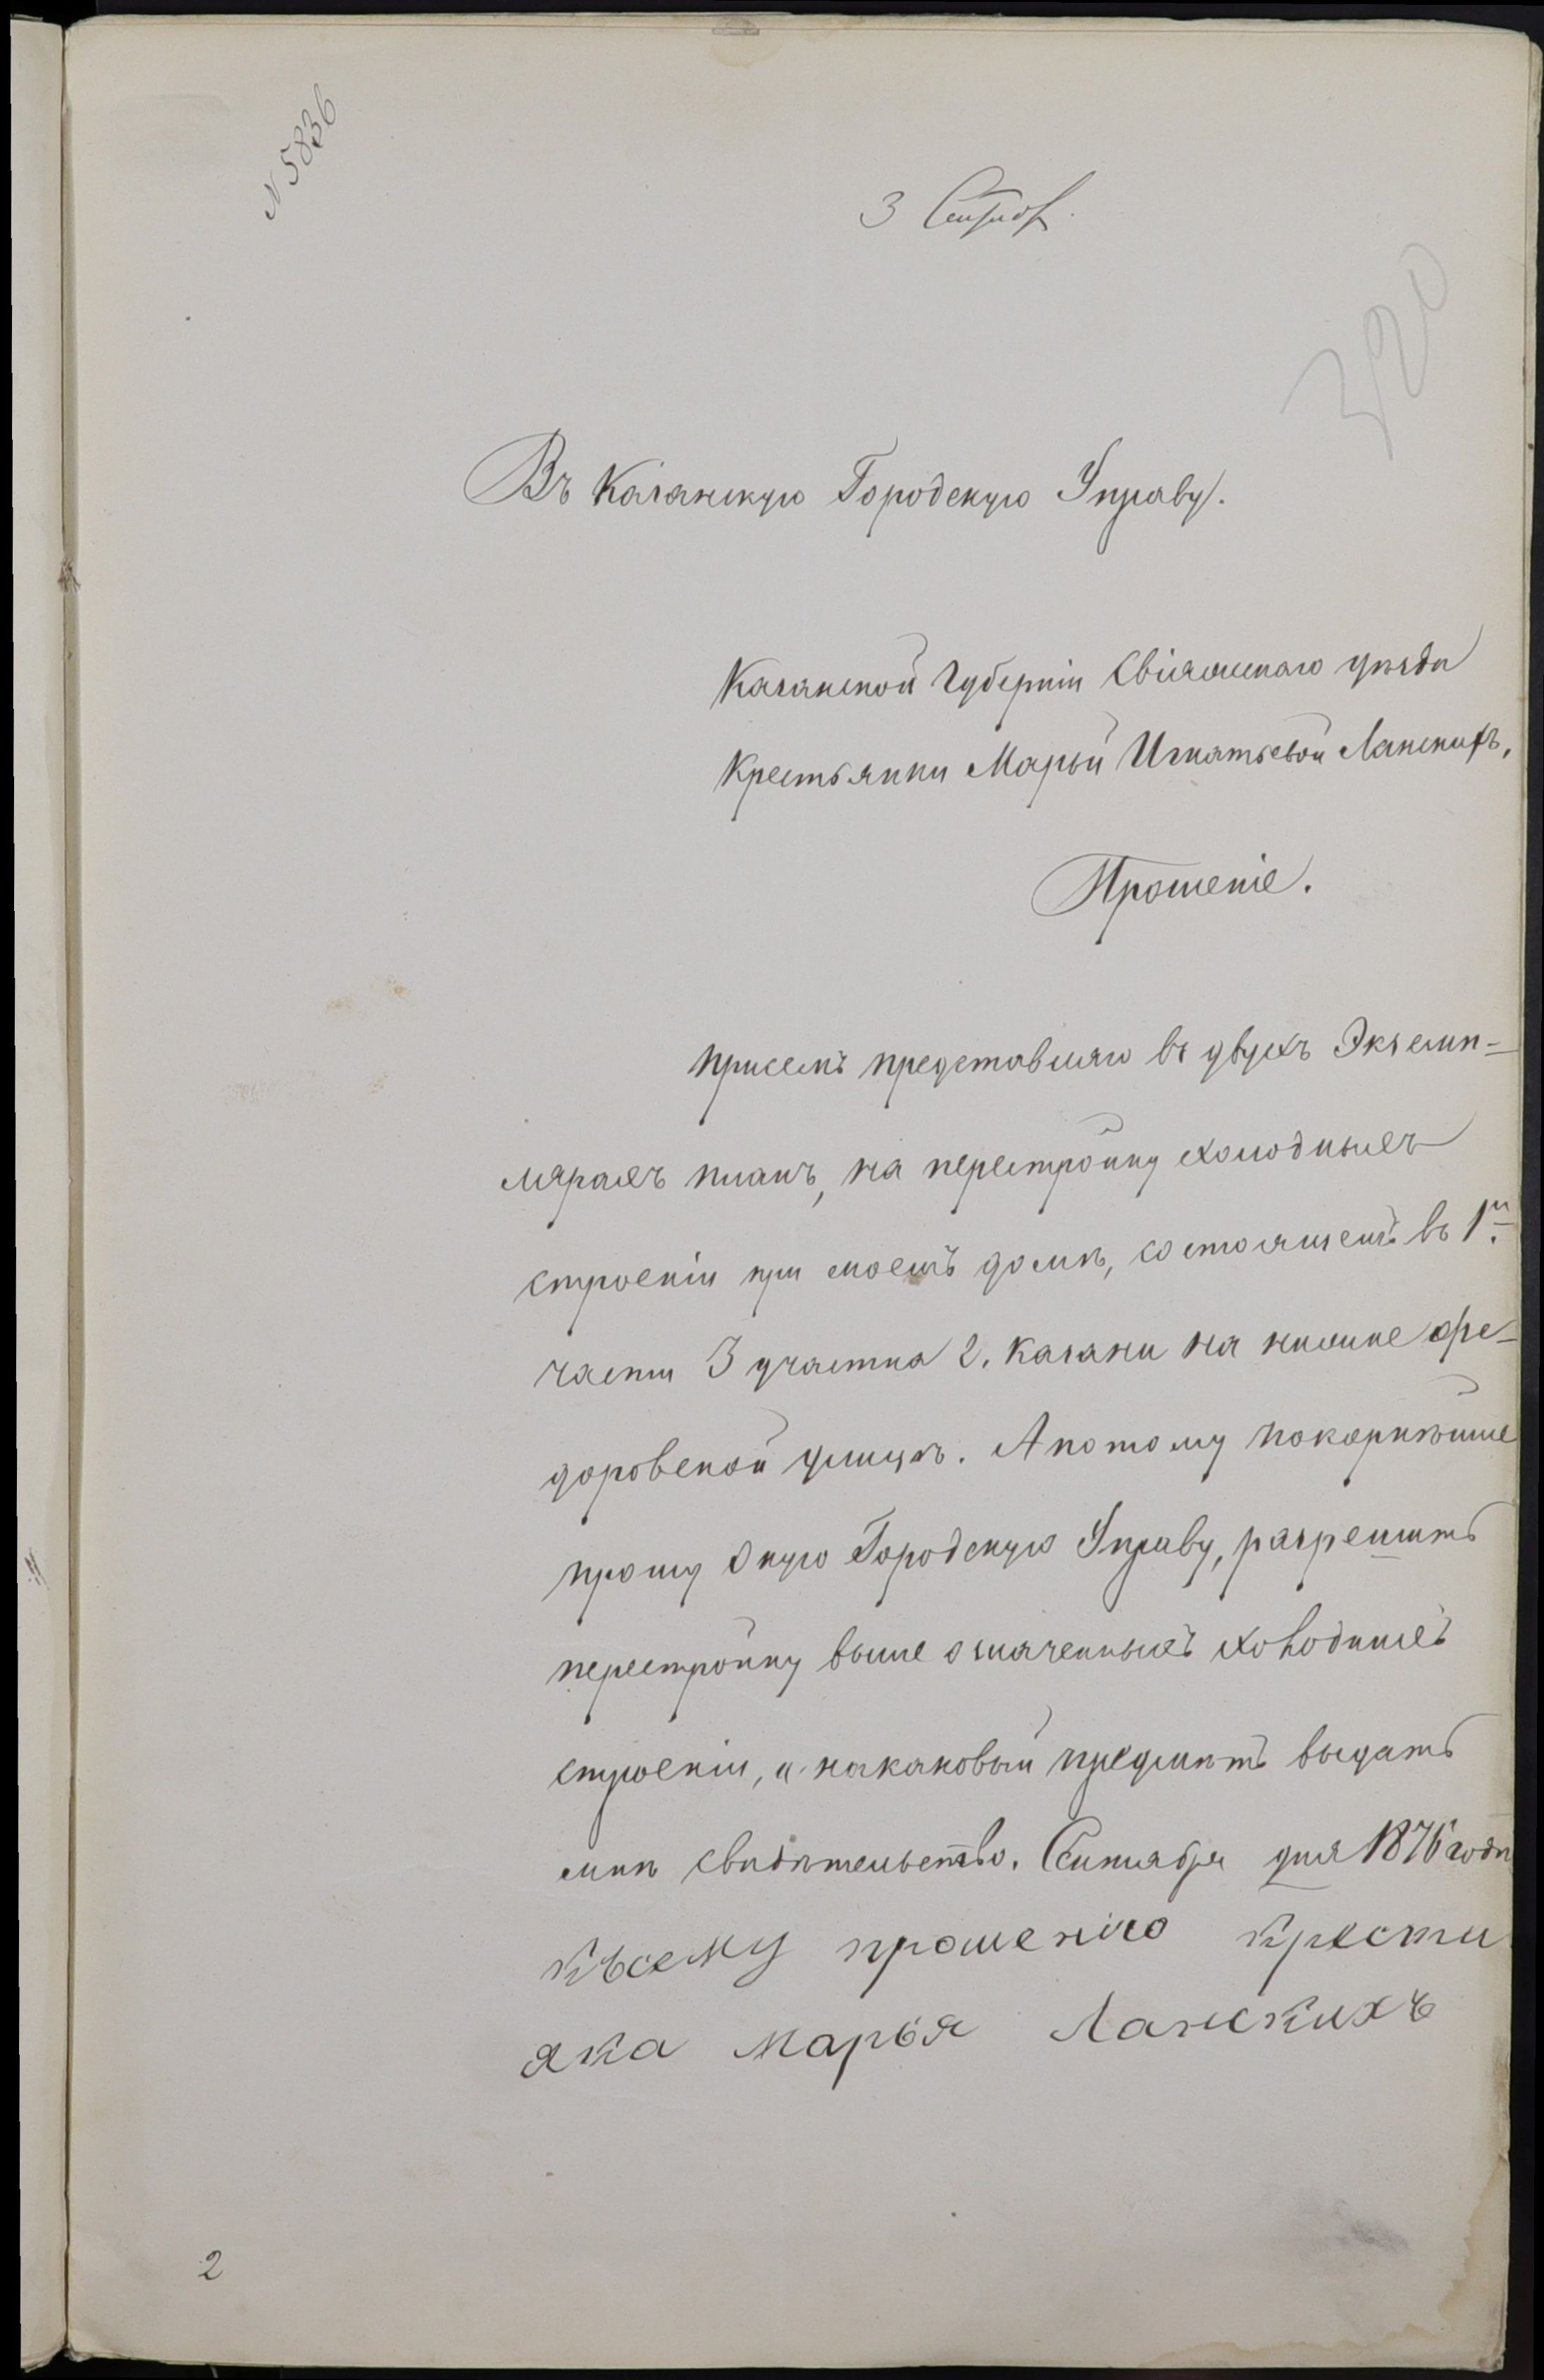 N 5836
3 Сентяб.
320
Въ Казанскую Городскую Управу.
Казанской Губерніи Свіяжскаго уѣзда
Крестьянки Марьи Игнатьевой Ланскихъ,
Прошеніе.
Присемъ представляю въ двухъ Экземп=
лярахъ планъ, на перестройку холодныхъ
строеніи при моемъ домѣ, состоящемъ въ 1й
части 3 участка г. Казани на нижне Фе-
доровской улицѣ. А потому покорнѣйше
прошу Оную Городскую Управу, разрешить
перестройку выше означенныхъ холодныхъ
строеніи, и накаковый предметъ выдать
мнѣ свидѣтельство. Сентября дня 1876 года
Къ сему прошенію крестья
яка Марья Ланскихъ
2